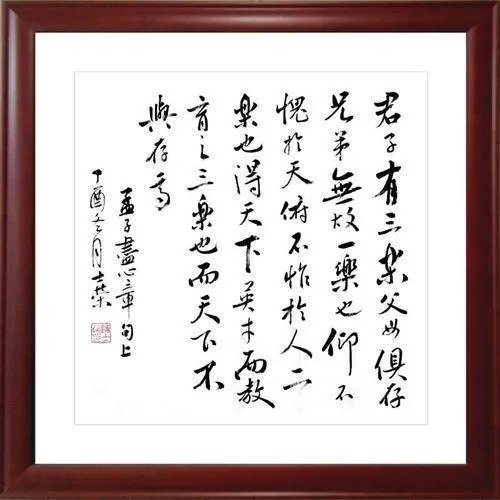 君子有三樂父母俱存
兄弟無故一樂也仰不
愧於天俯不怍於人二
樂也得天下英才而教
育之三樂也而天下不
與存焉
孟子盡心章句上
丁酉冬月士榮